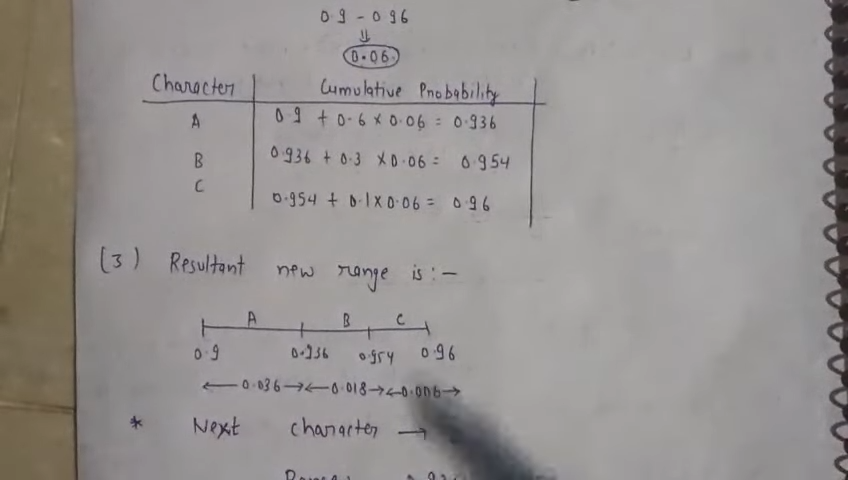 0.9 - 0.96
⇓
0.06
Character Cumulative Probability
A 0.9 + 0.6 x 0.06 = 0.936
B 0.936 + 0.3 x 0.06 = 0.954
C 0.954 + 0.1 x 0.06 = 0.96
(3) Resultant new range is :-
A B C
0.9 0.936 0.954 0.96
← 0.036 →← 0.018 →← 0.006 →
* Next character →